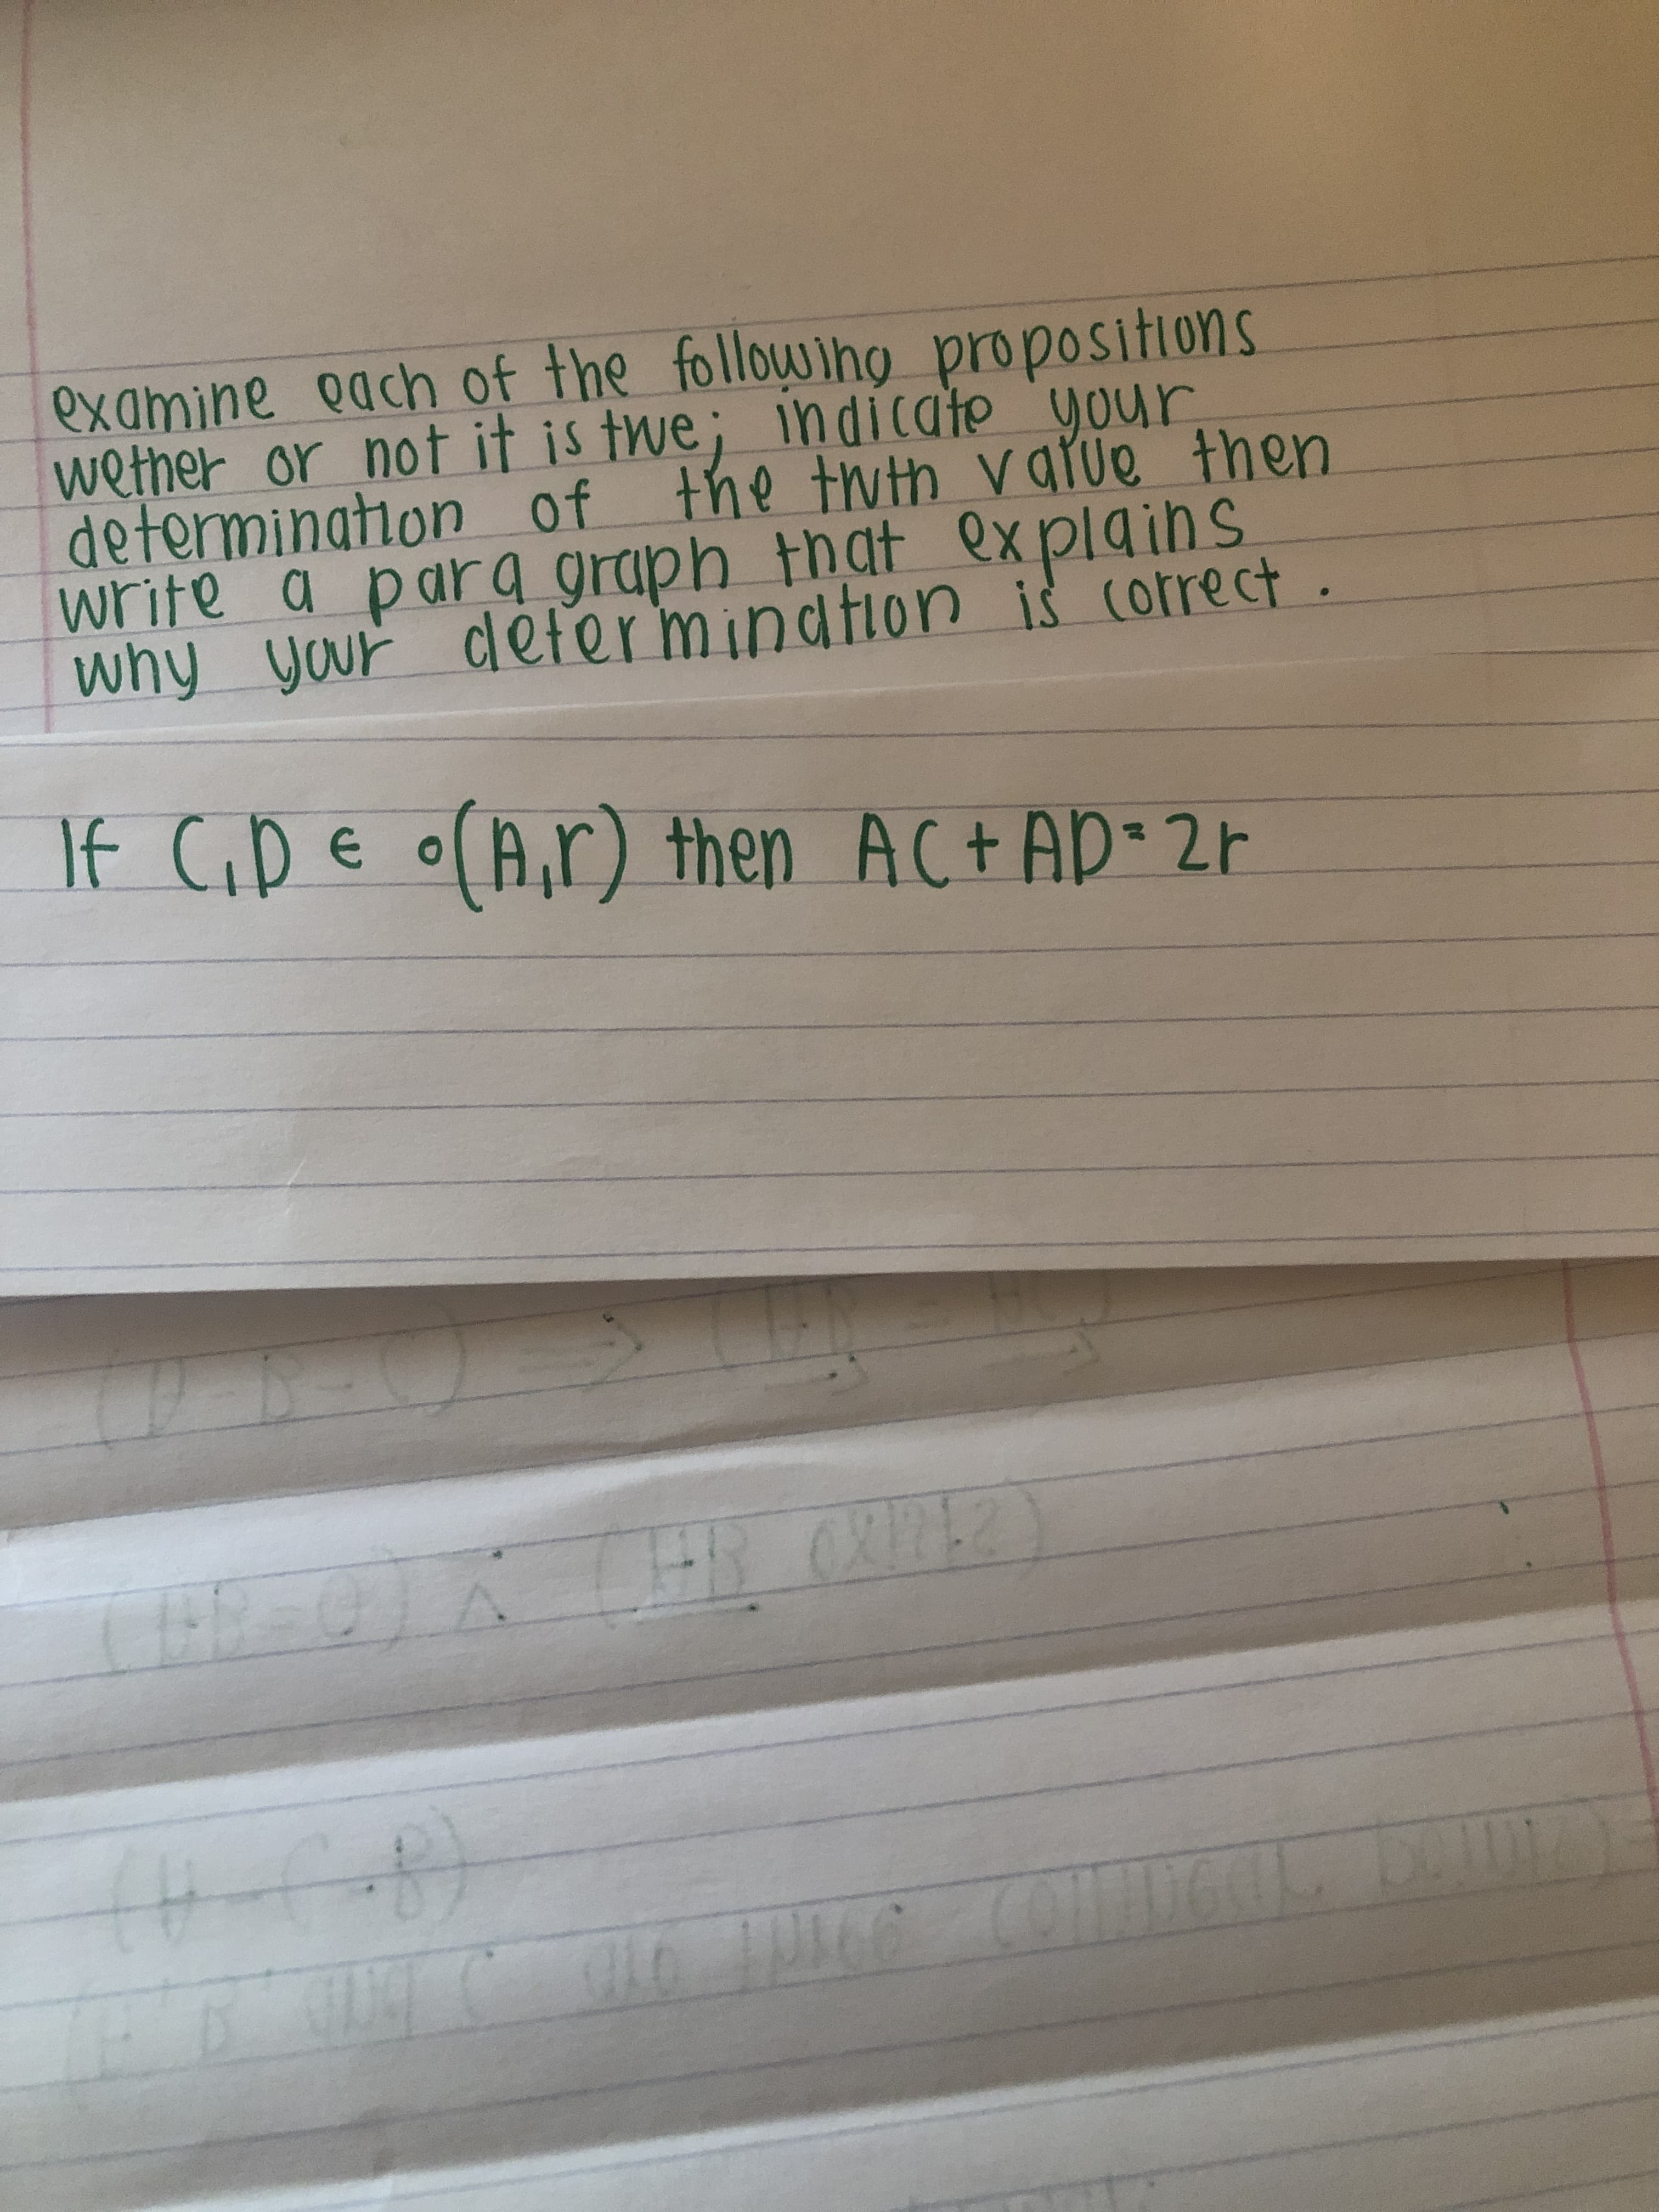 examine each of the following propositions
wether or not it is true; indicate your
determination of the truth value then
write a paragraph that explains
why your determination is correct.
If C,D ∈ ∘(A,r) then AC + AD = 2r